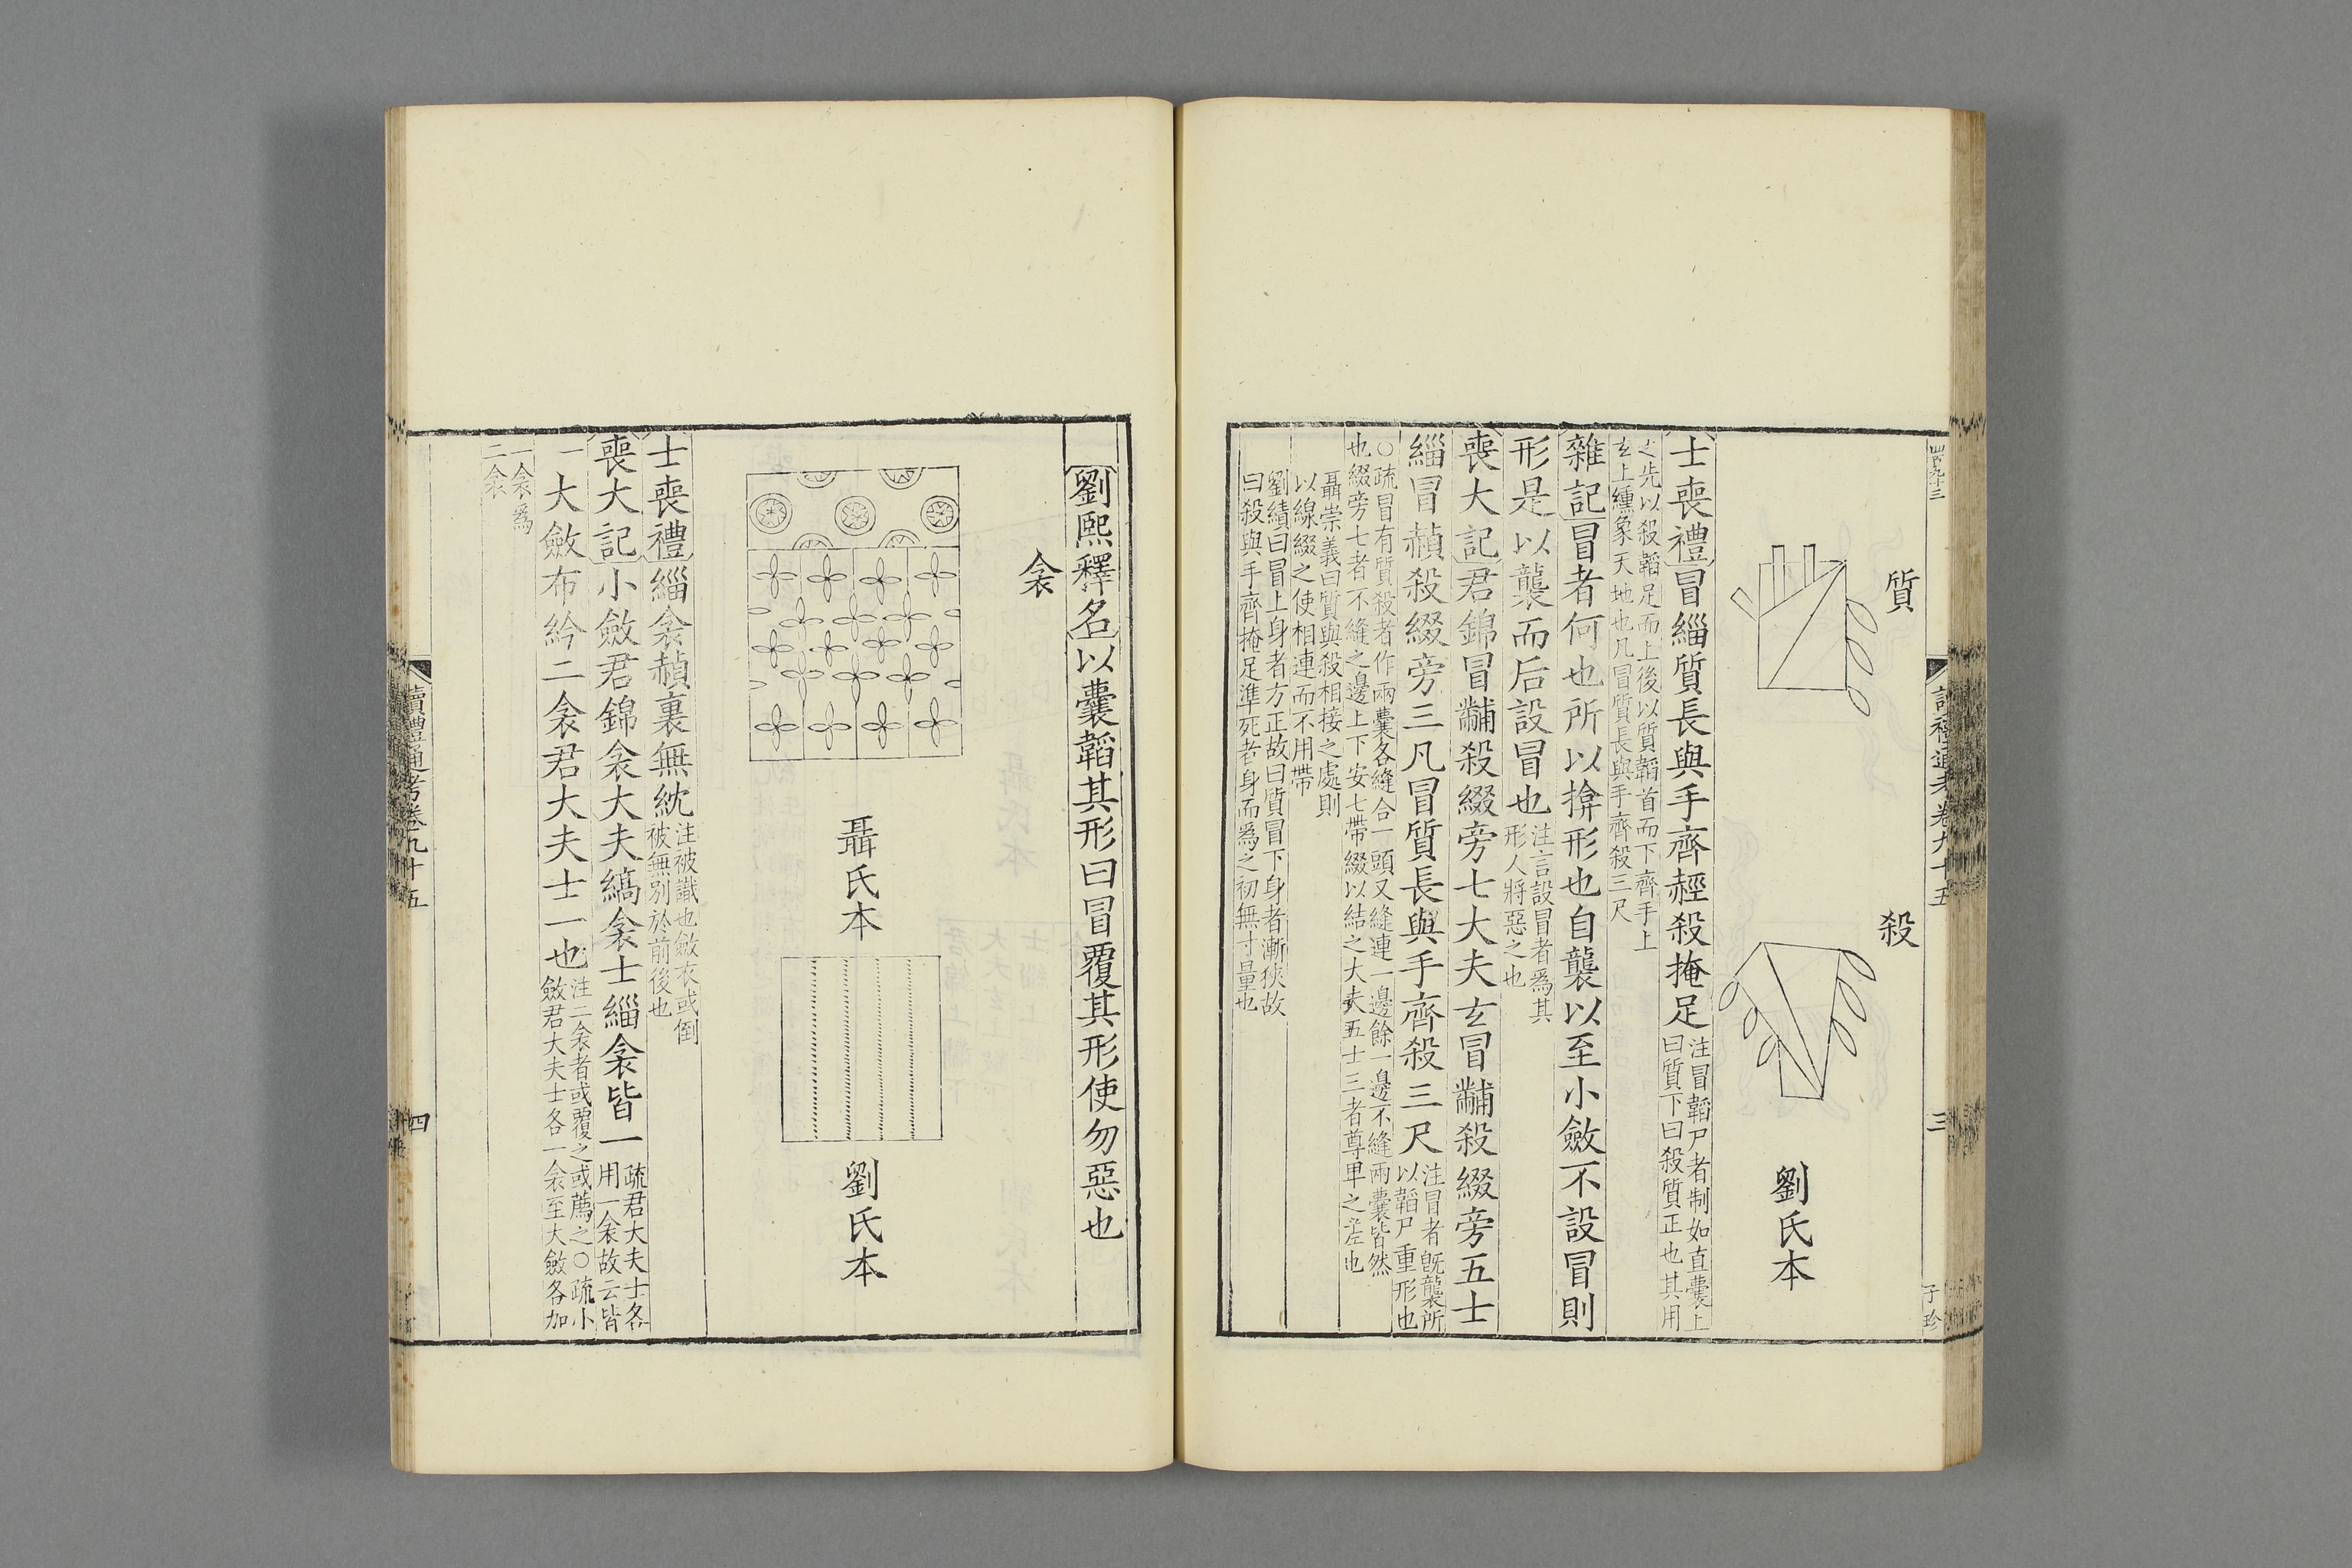 質
殺
劉氏本
士喪禮冒緇質長與手齊䞓殺掩足注冒韜尸者制如直囊上
曰質下曰殺質正也其用
之先以殺韜足而上後以質韜首而下齊手上
玄上纁象天地也凡冒質長與手齊殺三尺
雜記冒者何也所以揜形也自襲以至小斂不設冒則
形是以襲而后設冒也注言設冒者爲其
形人將惡之也
喪大記君錦冒黼殺綴旁七大夫玄冒黼殺綴旁五士
緇冒赬殺綴旁三凡冒質長與手齊殺三尺注冒者旣襲所
以韜尸重形也
○疏冒有質殺者作兩囊各縫合一頭又縫連一邊餘一邊不縫兩囊皆然
也綴旁七者不縫之邊上下安七帶綴以結之大夫五士三者尊卑之差也
聶崇義曰質與殺相接之處則
以線綴之使相連而不用帶
劉績曰冒上身者方正故曰質冒下身者漸狹故
曰殺與手齊掩足準死者身而爲之初無寸量也
三
子珍
劉熙釋名以囊韜其形曰冒覆其形使勿惡也
衾
聶氏本
劉氏本
士喪禮緇衾赬裏無紞注被識也斂衣或倒
被無別於前後也
喪大記小斂君錦衾大夫縞衾士緇衾皆一疏君大夫士各
用一衾故云皆
一大斂布紟二衾君大夫士一也注二衾者或覆之或薦之○疏小
斂君大夫士各一衾至大斂各加
一衾爲
二衾
讀禮通考卷九十五
四